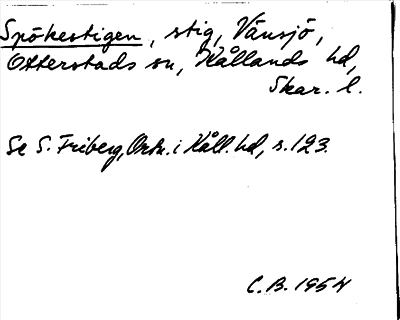 Spökestigen, stig, Vänsjö,
Otterstads sn, Kållands hd,
Skar. l.
Se S. Friberg, Ortn. i Kåll. hd, s. 123.
C. B. 1954